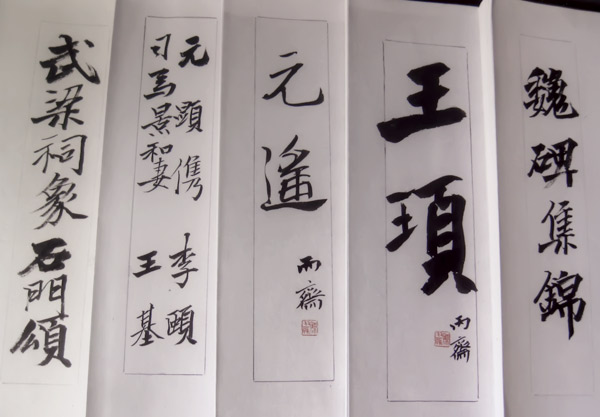 魏碑集錦
王頊
雨齋
元遙
雨齋
元顯儁 李頤
司馬景和妻 王基
武梁祠象 石門頌